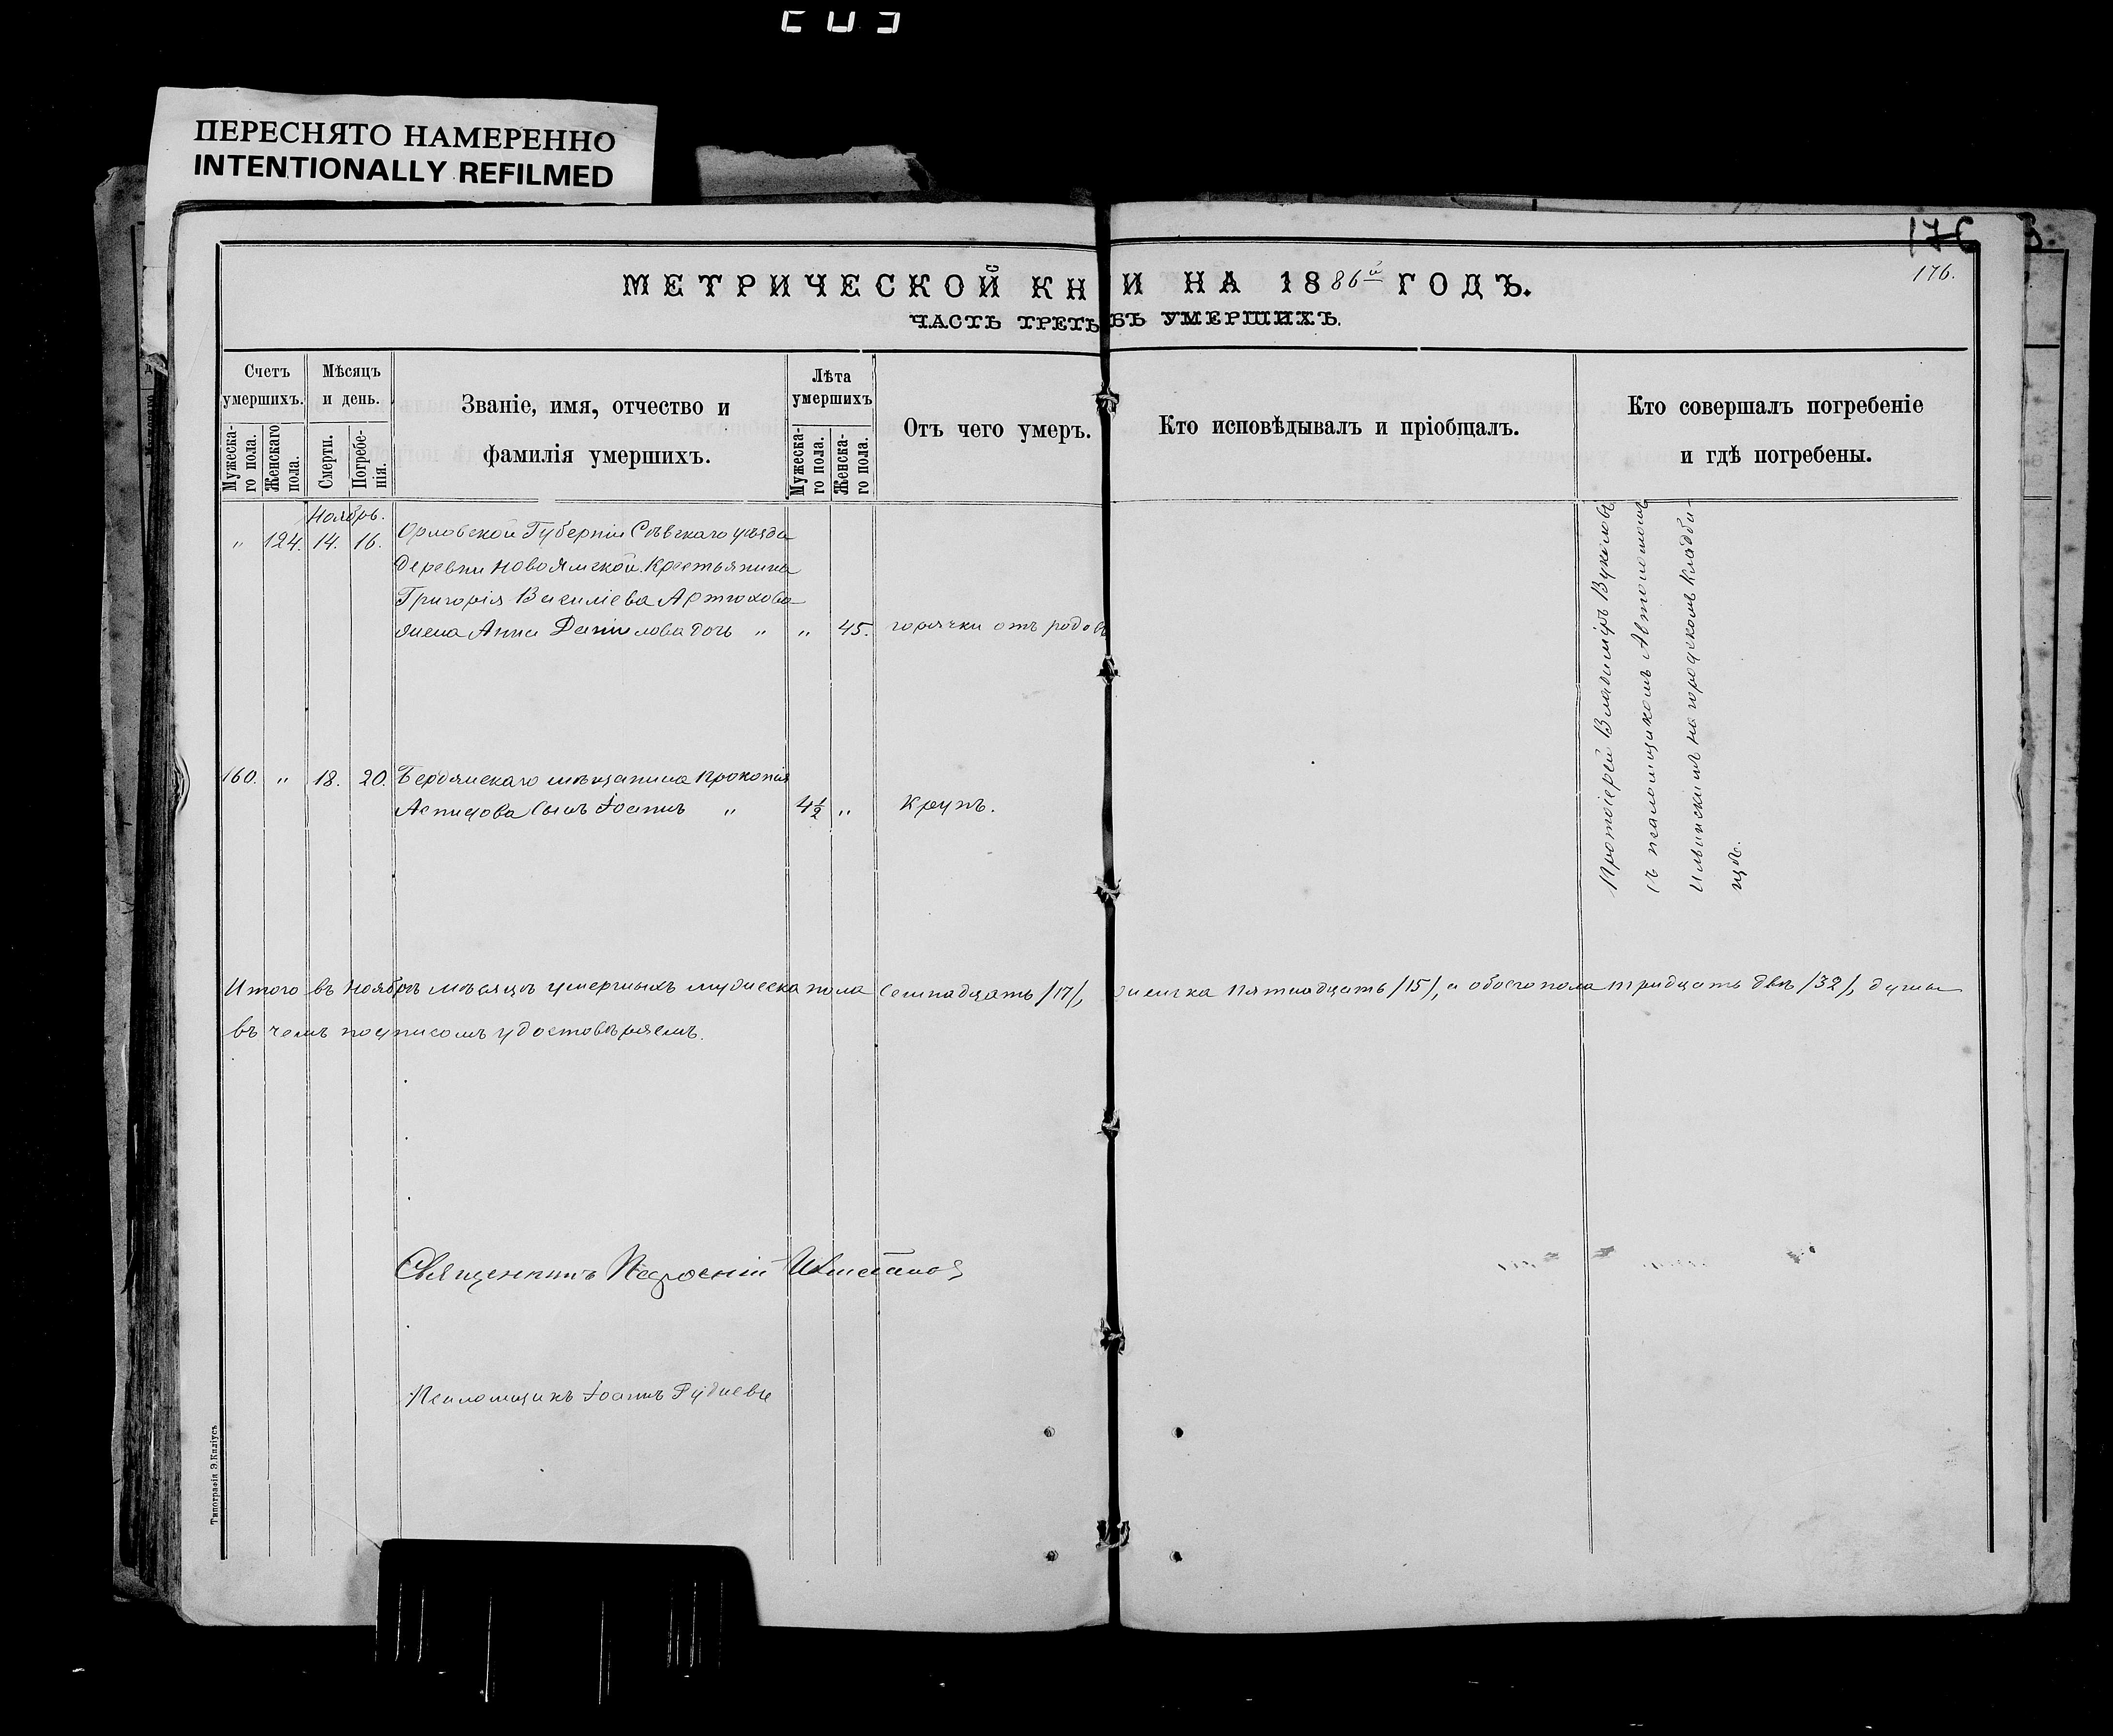 ПЕРЕСНЯТО НАМЕРЕННО
INTENTIONALLY REFILMED
176
176.
МЕТРИЧЕСКОЙ КН И НА 1886й ГОДЪ.
ЧАСТЬ ТРЕТЬ БЪ УМЕРШИХЪ.
Счетъ умершихъ.
Мужеска-го пола.
Женскаго пола.
Мѣсяцъ и день.
Смерти.
Погребе-нія.
Званіе, имя, отчество и фамилія умершихъ.
Лѣта умершихъ
Мужеска-го пола.
Женска-го пола.
Отъ чего умеръ.
Кто исповѣдывалъ и пріобщалъ.
Кто совершалъ погребеніе и гдѣ погребены.
Ноябрь.
„ 124. 14. 16. Орловской Губерніи Сѣвскаго уѣзда
деревни Новоямской Крестьянина
Григорія Василіева Артюхова
жена Анна Данилова дочь „ „ 45. горячки отъ родовъ
160. „ 18. 20. Бердянскаго мѣщанина Прокопія
сынъ Іоаннъ „ 4½ „ Крупъ.
Протоіерей Владиміръ Вуколовъ
съ псаломщикомъ Автономомъ
Ильинскимъ на городскомъ кладби-
щѣ.
Итого въ Ноябрѣ мѣсяцѣ умершихъ мужеска пола семнадцать /17/, женска пятнадцать /15/, а обоего пола тридцать двѣ /32/, души
въ чемъ подписомъ удостовѣряемъ.
Священникъ
Псаломщикъ Іоаннъ
Типографія Э. Килусъ